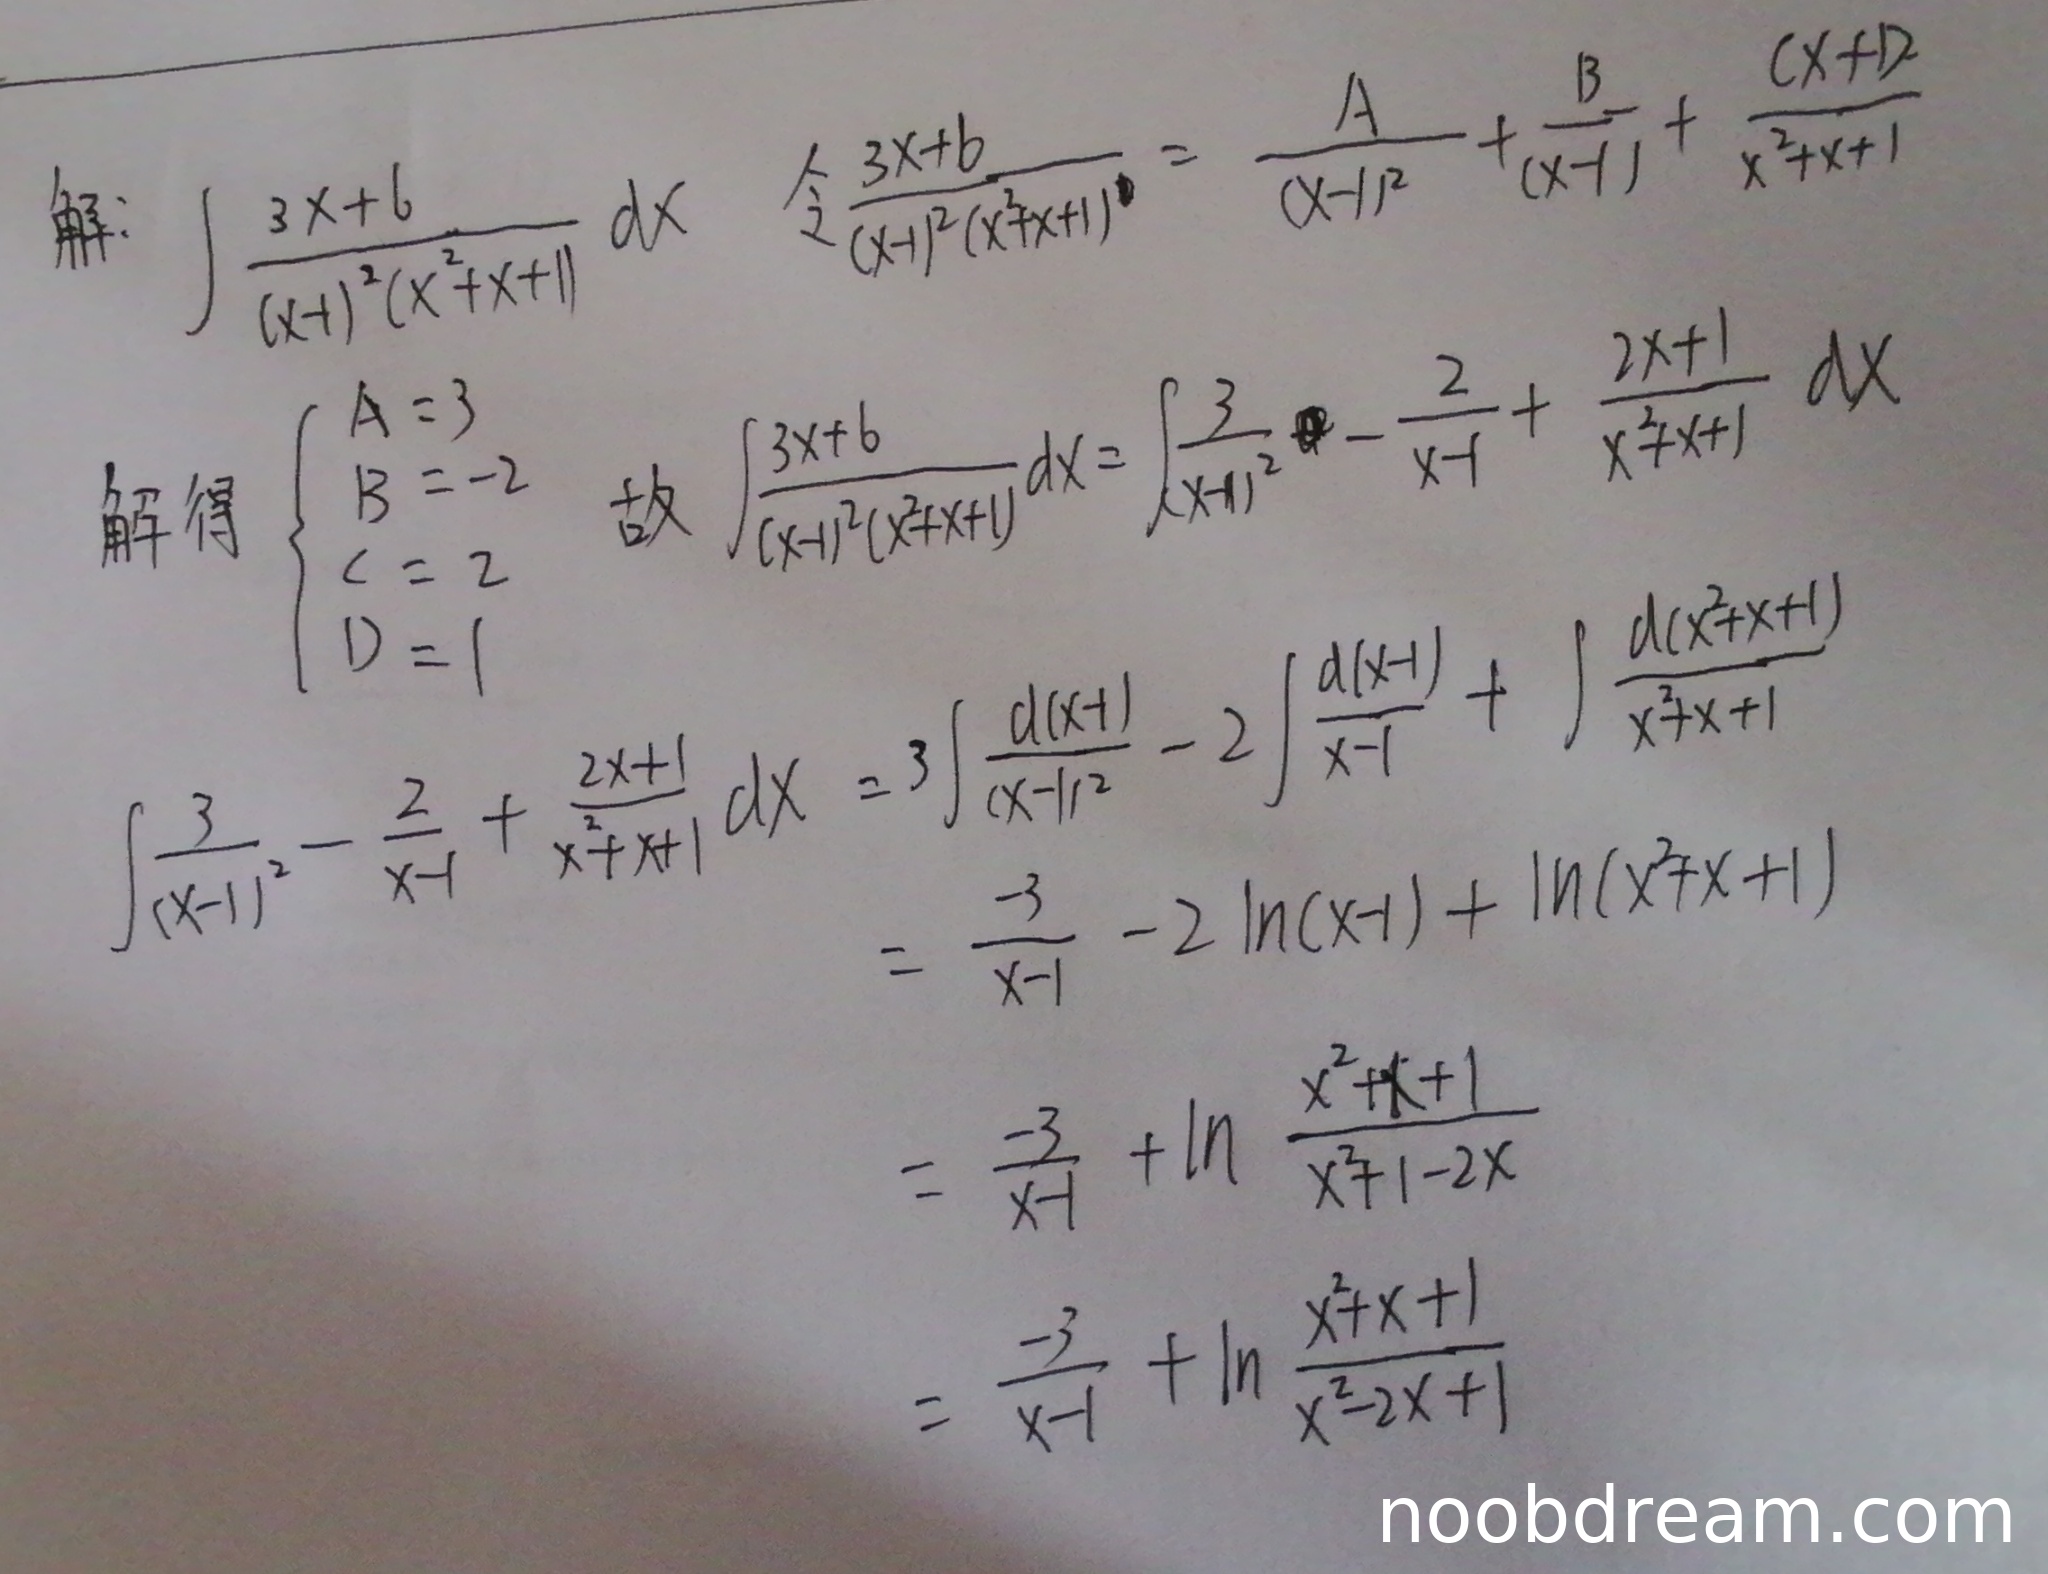 解: ∫ (3x+6)/((x-1)²(x²+x+1)) dx 令 (3x+6)/((x-1)²(x²+x+1)) = A/(x-1)² + B/(x-1) + (Cx+D)/(x²+x+1)
解得 { A=3 B=-2 C=2 D=1 故 ∫ (3x+6)/((x-1)²(x²+x+1)) dx = ∫ 3/(x-1)² - 2/(x-1) + (2x+1)/(x²+x+1) dx
∫ 3/(x-1)² - 2/(x-1) + (2x+1)/(x²+x+1) dx = 3∫ d(x-1)/(x-1)² - 2∫ d(x-1)/(x-1) + ∫ d(x²+x+1)/(x²+x+1)
= -3/(x-1) - 2 ln(x-1) + ln(x²+x+1)
= -3/(x-1) + ln (x²+x+1)/(x²+1-2x)
= -3/(x-1) + ln (x²+x+1)/(x²-2x+1)
noobdream.com